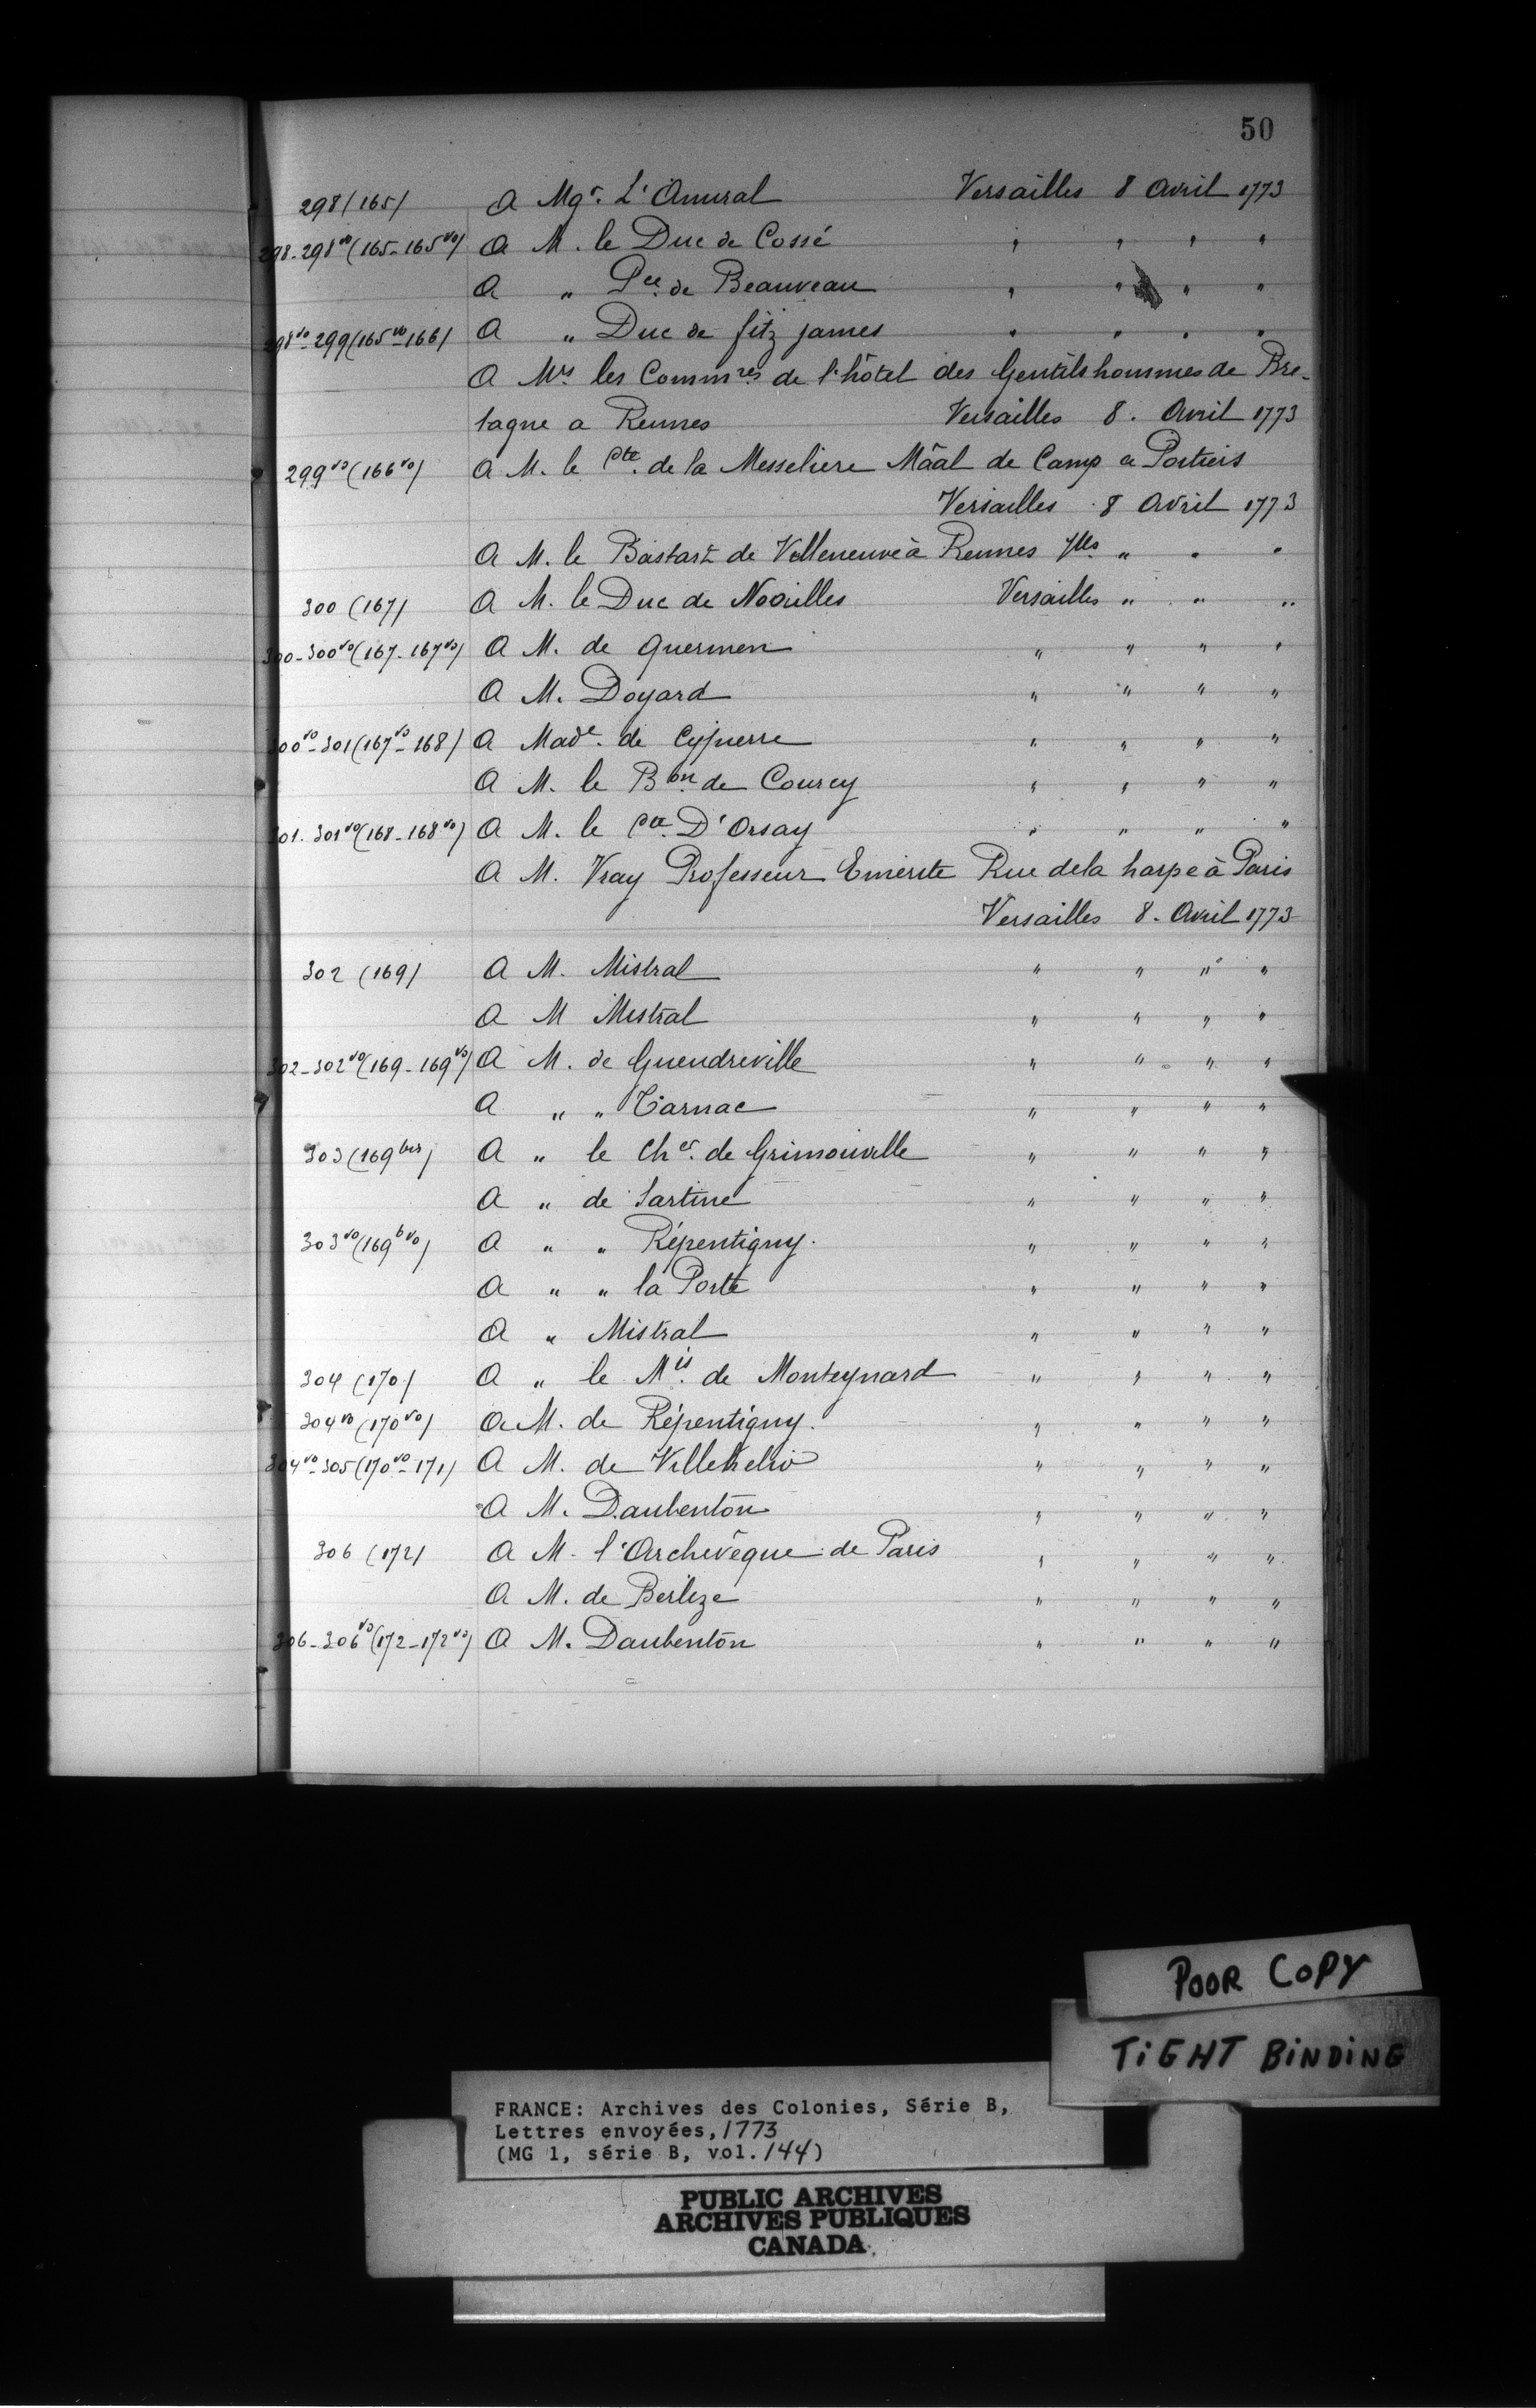 50
298 (165) A Mgr. L'Amiral Versailles 8 Avril 1773
298-298vo (165-165vo) A M. le Duc de Cossé " " " "
A " Pce. de Beauveau " " " "
298vo-299 (165vo-166) A " Duc de fitz james " " " "
A Mrs les Commres de l'hôtel des Gentilshommes de Bre-
tagne a Rennes Versailles 8. Avril 1773
299vo (166vo) A M. le Cte. de la Messeliere Mâal de Camp a Poitiers
Versailles 8 Avril 1773
A M. le Bastart de Villeneuve à Rennes Vlles " " "
300 (167) A M. le Duc de Noailles Versailles " " "
300-300vo (167-167vo) A M. de Guermen " " " "
A M. Doyard " " " "
300vo-301 (167vo-168) A Made. de Cypierre " " " "
A M. le Bon. de Courcy " " " "
301-301vo (168-168vo) A M. le Cte. D'Orsay " " " "
A M. Vray Professeur Emerite Rue de la harpe à Paris
Versailles 8. Avril 1773
302 (169) A M. Mistral " " " "
A M Mistral " " " "
302-302vo (169-169vo) A M. de Gueudreville " " " "
A " " Tarnac " " " "
303 (169bis) A " le Cher. de Grimouville " " " "
A " de Sartine " " " "
303vo (169bvo) A " " Répentigny. " " " "
A " " la Porte " " " "
A " Mistral " " " "
304 (170) A " le Mis. de Monteynard " " " "
304vo (170vo) A M. de Répentigny. " " " "
304vo-305 (170vo-171) A M. de Villehelio " " " "
A M. Daubenton " " " "
306 (172) A M. l'Archevêque de Paris " " " "
A M. de Berlize " " " "
306-306vo (172-172vo) A M. Daubenton " " " "
POOR COPY
TIGHT BINDING
FRANCE: Archives des Colonies, Série B,
Lettres envoyées, 1773
(MG 1, série B, vol. 144)
PUBLIC ARCHIVES
ARCHIVES PUBLIQUES
CANADA